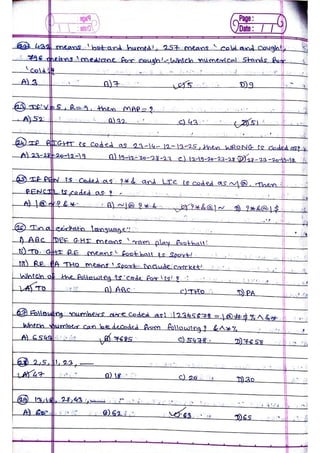 Page:
Date: / /
432 means 'hot and humid', 257 means 'cold and cough',
796 means 'medicine for cough'. Which numerical stands for
'cold'?
A) 3 B) 7 C) 5 D) 9
If V=5, R=9, then MAP=?
A) 52 B) 32 C) 43 D) 51
24 If RIGHT is coded as 23-14-12-13-25, then WRONG is coded as?
A) 23-28-20-12-19 B) 19-12-20-28-23 C) 12-19-20-23-28 D) 28-23-20-19-12
If PEN is coded as ?*& and LIC is coded as ~!@. Then
PENCIL is coded as ?
In a certain language:
I) ABC DEF GHI means 'ram play football'
II) TO GHI RE means 'football is sport'
III) RE PA THO means 'sport include cricket'
Which of the following is 'code for is'?
A) TO B) ABC C) THO D) PA
Following numbers are coded as: 12345678 = !@#$%^&*
Which number can be decoded from following? &^*%
A) 6547 B) 7685 C) 5478 D) 7658
2, 5, 11, 23, —
A) 47 B) 18 C) 20 D) 30
13, 18, 28, 43, —
A) 60 B) 62 C) 63 D) 65